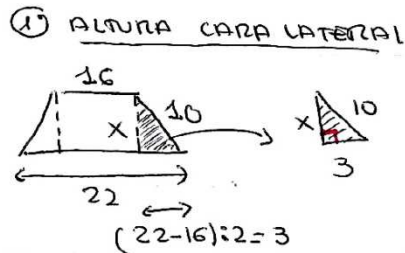 1º ALTURA CARA LATERAL
16
x 10
x 10
3
22
(22-16):2=3